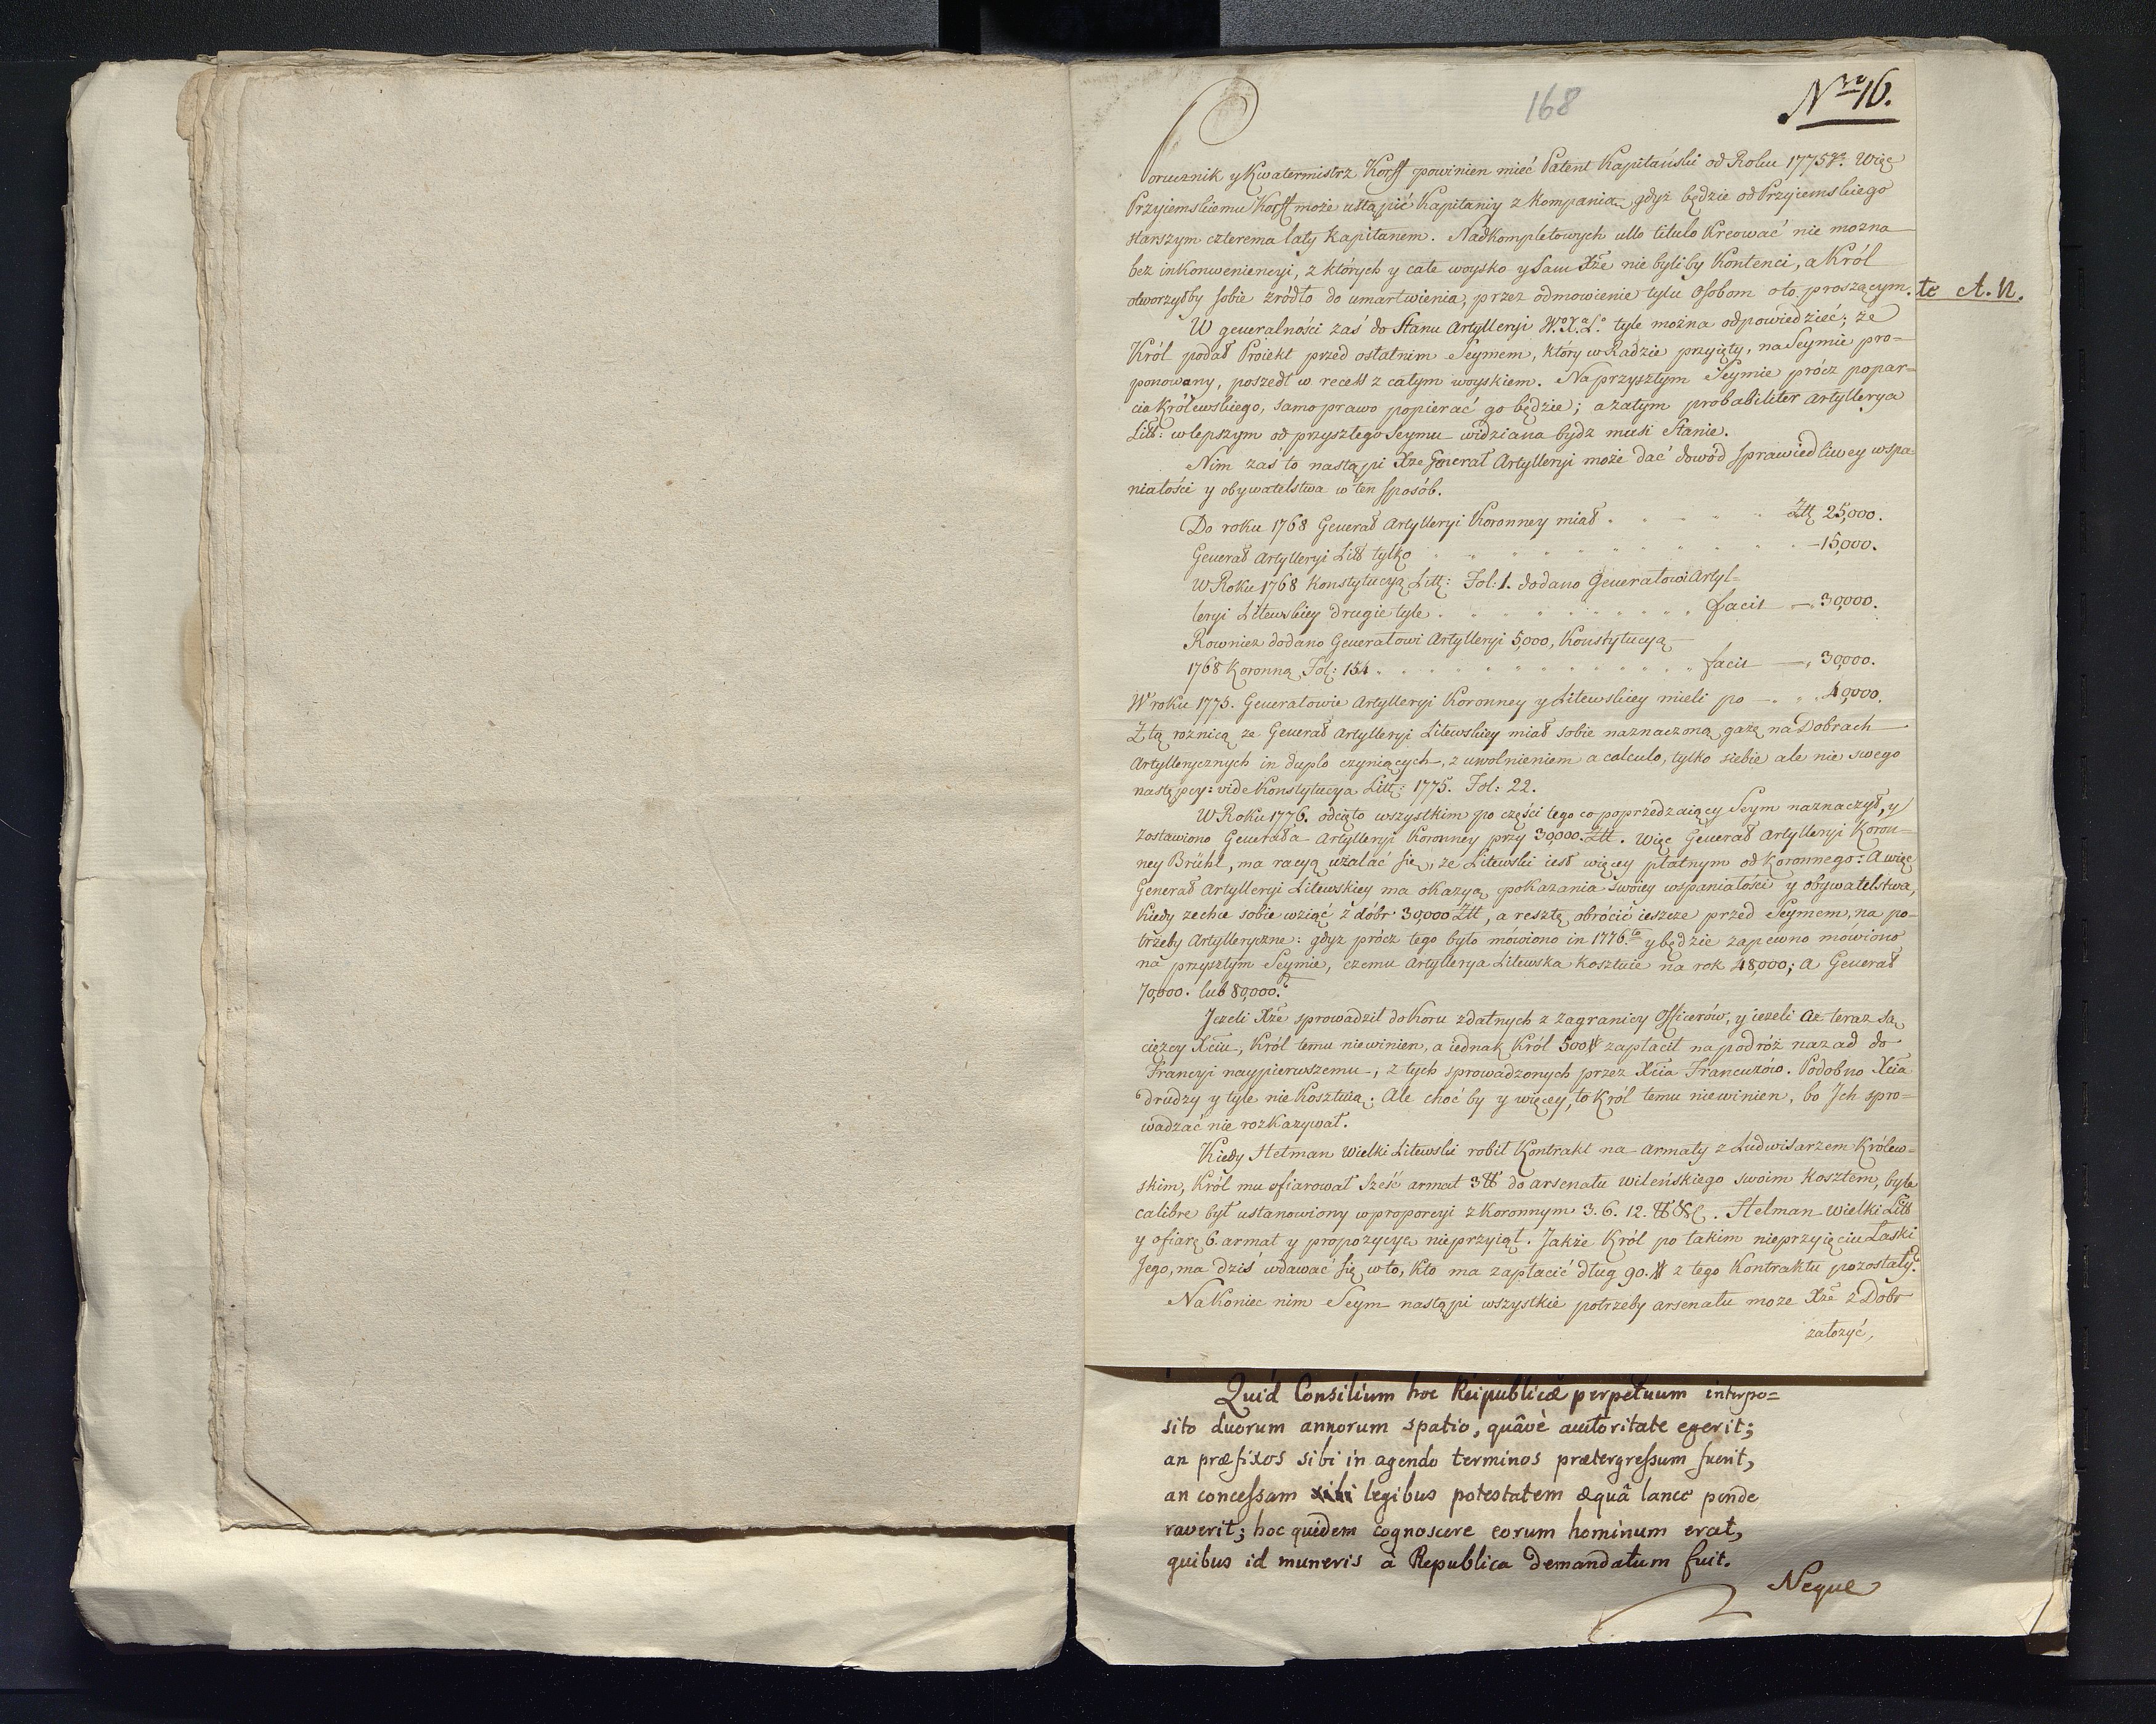 168
Nro 16.
Porucznik y Kwatermistrz Korff powinien mieć Patent Kapitański od Roku 1775go. Więc
Przyiemskiemu Korff może ustąpić Kapitaniy z kompanią, gdyż będzie od Przyiemskiego
starszym czterema laty kapitanem. Nadkompletowych ullo titulo kreować nie mozna
bez inkonweniencyi, z których y całe woysko y sam Xże nie byliby kontenci, a Król
otworzyłby sobie źródło do umartwienia, przez odmowienie tylu osobom oto proszącym.
te A. N.
W generalności zaś do Stanu Artylleryi W. X. L. tyle można odpowiedzieć; że
Król podał Proiekt przed ostatnim Seymem, który w Radzie przyięty, na Seymie pro=
ponowany, poszedł w recess z całym woyskiem. Na przyszłym Seymie prócz popar=
cia Królewskiego, samo prawo popierać go będzie; a zatym probabiliter Artyllerya
Litt: w lepszym od przyszłego Seymu widziana bydz musi Stanie.
Nim zaś to nastąpi Xże Generał Artylleryi może dać dowód sprawiedliwey wspa=
niałości y obywatelstwa w ten sposób.
Do roku 1768 Generał Artylleryi Koronney miał . . . . Złł 25,000.
Generał Artylleryi Litt tylko . . . . . . . . . . — 15,000.
W Roku 1768 konstytucyą Litt: Fol: 1. dodano Generałowi Artyl=
leryi Litewskiey drugie tyle . . . . . . . . facit — 30,000.
Rowniez dodano Generałowi Artylleryi 5,000, Konstytucyą
1768 Koronną, Fol: 154 . . . . . . . . . . facit — 30,000.
W roku 1775. Generałowie Artylleryi Koronney y Litewskiey mieli po — . . 40,000.
Z tą roznicą ze Generał Artylleryi Litewskiey miał sobie naznaczoną gażę na Dobrach
Artyllerycznych in duplo czyniących, z uwolnieniem a calculo, tylko siebie ale nie swego
następcy: vide Konstytucya Litt: 1775. Fol: 22.
W Roku 1776. odcięto wszystkim po części tego co poprzedzaiący Seym naznaczył, y
zostawiono Generała Artylleryi Koronney przy 30,000. Złł. Więc Generał Artylleryi Koron=
ney Brühl, ma racyą użalać się, że Litewski iest więcey płatnym od koronnego: A więc
Generał Artylleryi Litewskiey ma okazyą pokazania swoiey wspaniałości y obywatelstwa,
kiedy zechce sobie wziąć z dóbr 30,000 Złł, a resztę obrócić ieszcze przed Seymem, na po=
trzeby Artylleryczne: gdyz prócz tego było mówiono in 1776to y będzie zapewno mówiono
na przyszłym Seymie, czemu Artyllerya Litewska kosztuie na rok 48,000; a Generał
70,000. lub 80,000.?
Jezeli Xże sprowadził do Koru zdatnych z zagranicy Officerów, y iezeli Ac teraz są
ciężcy Xciu, Król temu niewinien, a iednak Król 500# zapłacił na podróż nazad do
Francyi naypierwszemu, z tych sprowadzonych przez Xcia Francuzów. Podobno Xcia
drudzy y tyle nie kosztuią. Ale choć by y więcey, to Król temu niewinien, bo Jch spro=
wadzać nie rozkazywał.
Kiedy Hetman Wielki Litewski robił Kontrakt na armaty z Ludwisarzem Królew=
skim, Król mu ofiarował sześć armat 3 ℔ do arsenału wileńskiego swoim kosztem, byle
calibre był ustanowiony w proporcyi z koronnym 3. 6. 12. ℔. Hetman Wielki Litt
y ofiarę 6. armat y propozycyę nieprzyiął. Jakże Król po takim nieprzyięciu Łaski
Jego, ma dziś wdawać się w to, kto ma zapłacić dług 90.# z tego Kontraktu pozostały?
Nakoniec nim Seym nastąpi wszystkie potrzeby arsenału moze Xże z Dobr
założyć,
Quid Consilium hoc Reipublicæ perpetuum interpo=
sito duorum annorum spatio, quâvè auctoritate egerit;
an præfixos sibi in agendo terminos prætergressum fuerit,
an concessam legibus potestatem æquâ lance ponde
raverit; hoc quidem cognoscere eorum hominum erat,
quibus id muneris à Republica demandatum fuit.
Neque